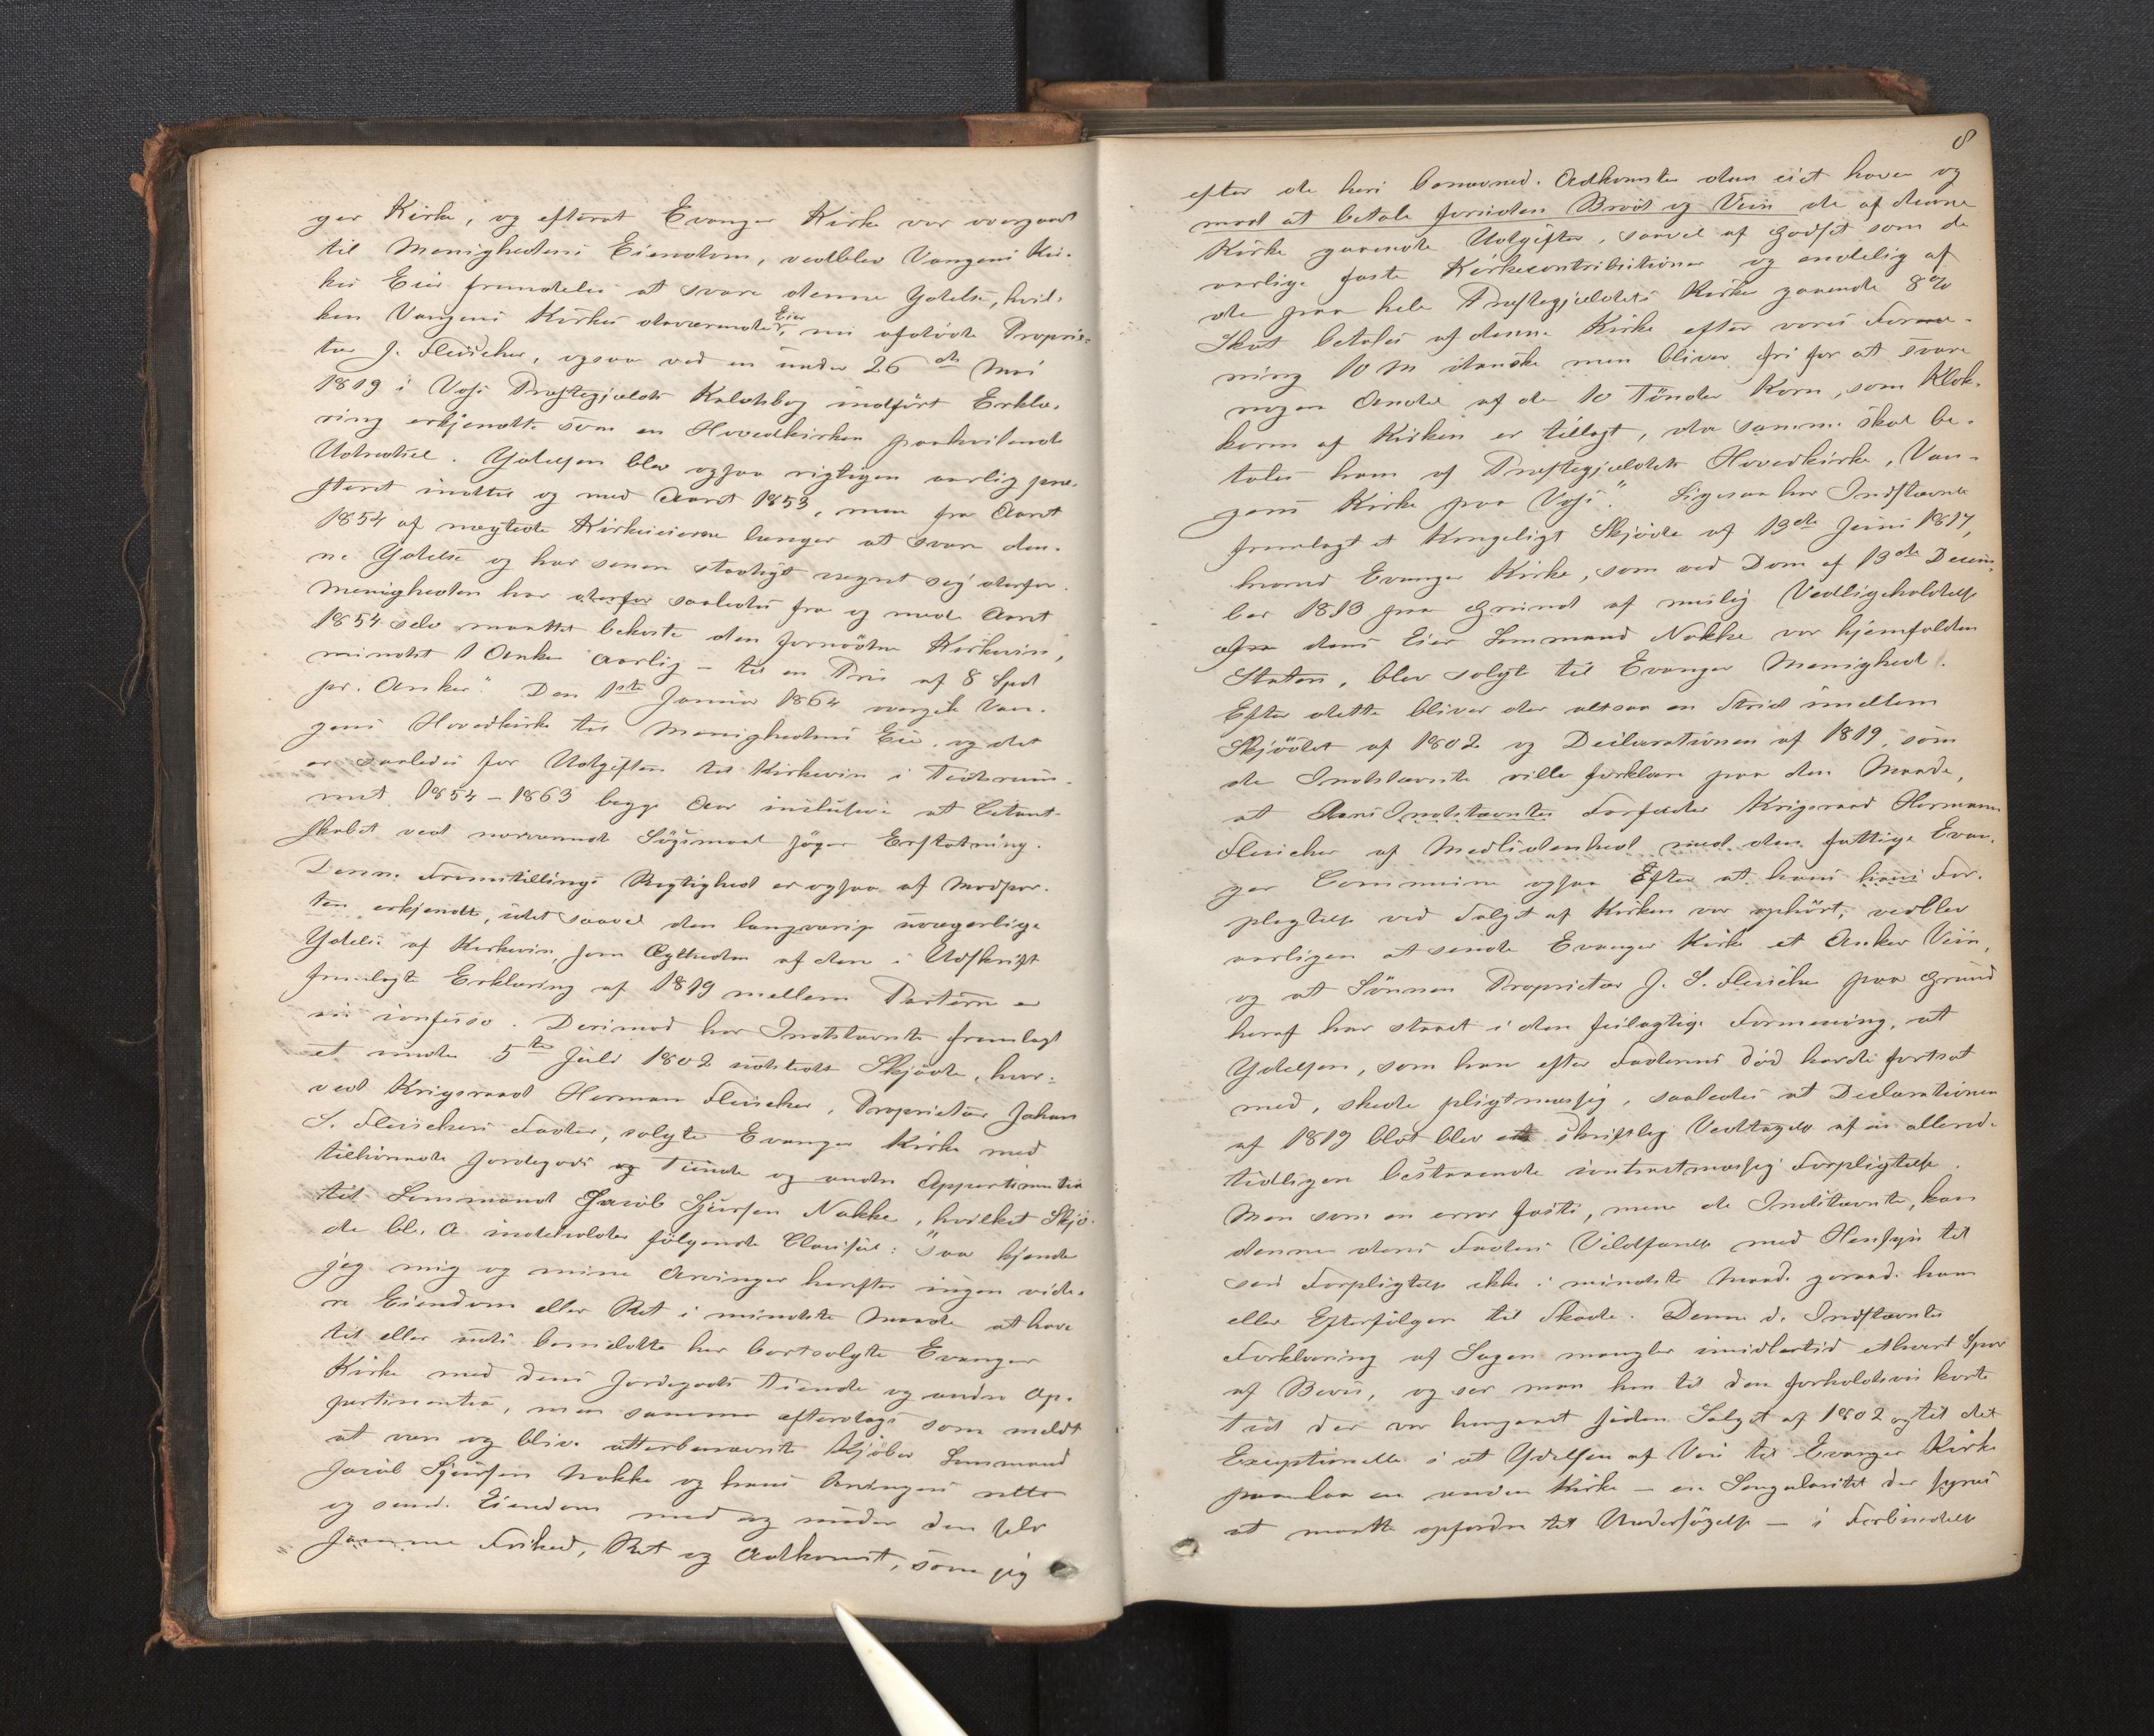 ger Kirke, og efterat Evanger Kirke var overgaaet
til Menighedens Eiendom, vedblev Vangens Kir-
kes Eier fremdeles at svare denne Ydelse, hvil-
ken Vangens Kirkes daværende Eier, nu afdøde Proprie-
tær J. Fleischer, ogsaa ved en under 26de Mai
1819 i Voss Præstegjelds Kaldsbog indført Erklæ-
ring erkjendte som en Hovedkirken paahvilende
Udredsel. Ydelsen blev ogsaa rigtigen aarlig præ-
steret indtil og med Aaret 1853, men fra Aaret
1854 af nægtede Kirkeeierne længer at svare den-
ne Ydelse og har senere stadigt vegret sig derfor.
Menigheden har derfor saaledes fra og med Aaret
1854 selv maattet bekoste den fornødne Kirkevin,
mindst 1 Anker aarlig – til en Pris af 8 Spd
pr. Anker." Den 1ste Januar 1864 overgik Van-
gens Hovedkirke til Menighedens Eie, og det
er saaledes for Udgiften til Kirkevin i Tidsrum-
met 1854 – 1863 begge Aar inclusive at Citant-
skabet ved nærværende Søgsmaal søger Erstatning.
Denne Fremstillings Rigtighed er ogsaa af Modpar-
ten erkjendt, idet saavel den langvarige uvægerlige
Ydelse af Kirkevin, som Ægtheden af den i Udskrift
fremlagte Erklæring af 1819 mellem Parterne er
in confesso. Derimod har Indstævnte fremlagt
et under 5te Juli 1802 udstedt Skjøde, hvor-
ved Krigsraad Herman Fleischer, Proprietær Johan
S. Fleischers Fader, solgte Evanger Kirke med
tilhørende Jordegods og Tiende og andre Appertinentia
til Lensmand Jacob Sjursen Nakke, hvilket Skjø-
de bl. A. indeholder følgende Clausul: "saa kjender
jeg mig og mine Arvinger herefter ingen vide-
re Eiendom eller Ret i mindste Maade at have
til eller udi bemeldte her bortsolgte Evanger
Kirke med dens Jordegods Tiende og andre Ap-
pertinentia, men samme efterdags som meldt
at være og blive velbenævnte Kjøber Lensmand
Jacob Sjursen Nakke og hans Arvingers rette
og sande Eiendom med og under den selv
samme Frihed, Ret og Adkomst, som jeg
8
efter de heri benævned. Adkomster den eiet haver og
mod at betale foruden Brød og Viin de af denne
Kirke gaaende Udgifter, saavel af Godset som de
aarlige faste Kirkecontributioner og endelig af
den paa hele Præstegjeldets Kirke gaaende 8%
Skat betales af denne Kirke efter vores Fore-
ning 10 M danske men bliver fri for at svare
nogen Andel af de 10 Tønder Korn, som Klok-
keren af Kirken er tillagt, der samme skal be-
tales ham af Præstegjeldets Hovedkirke, Van-
gens Kirke paa Voss." Ligesaa har Indstævnte
fremlagt et Kongeligt Skjøde af 13de Juni 1817,
hvorved Evanger Kirke, som ved Dom af 13de Decem-
ber 1813 paa Grund af mislig Vedligeholdelse
fra dens Eier Lensmand Nakke var hjemfalden
Staten, blev solgt til Evanger Menighed.
Efter dette bliver der altsaa en Strid imellem
Skjødet af 1802 og Declarationen af 1819, som
de Indstævnte ville forklare paa den Maade,
at Indstævntes Forfader Krigsraad Herman
Fleischer af Medlidenhed med den fattige Evan-
ger Commune ogsaa Efter at hans For-
pligtelse ved Salget af Kirken var ophørt, vedblev
aarligen at sende Evanger Kirke et Anker Viin,
og at Sønnen Proprietær J. S. Fleischer paa Grund
heraf har staaet i den feilagtige Formening, at
Ydelsen, som han efter Faderens Død havde fortsat
med, skede pligtmæssig, saaledes at Declarationen
af 1819 blot blev en skriftlig Vedtagelse af en allerede
tidligere bestaaende contractmæssig Forpligtelse.
Men som en error facti, mene de Indstævnte, kan
denne deres Faders Vildfarelse med Hensyn til
sin Forpligtelse ikke i mindste Maade geraade ham
eller Efterfølgere til Skade. Denne d. Indstævntes
Forklaring af Sagen mangler imidlertid ethvert Spor
af Bevis, og ser man hen til den forholdsvis korte
Tid der var hengaaet siden Salget af 1802 og til det
Exceptionelle i at Ydelsen af Vin til Evanger Kirke
paalaa en anden Kirke – en Singularitet der synes
at maatte opfordre til Undersøgelse – i Forbindelse